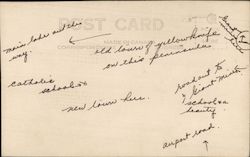 POST CARD
main lake and this
way.
old town of yellowknife
on this peninsula
catholic
school
new town here.
road out to
Giant Mine
school a
beauty.
airport road.